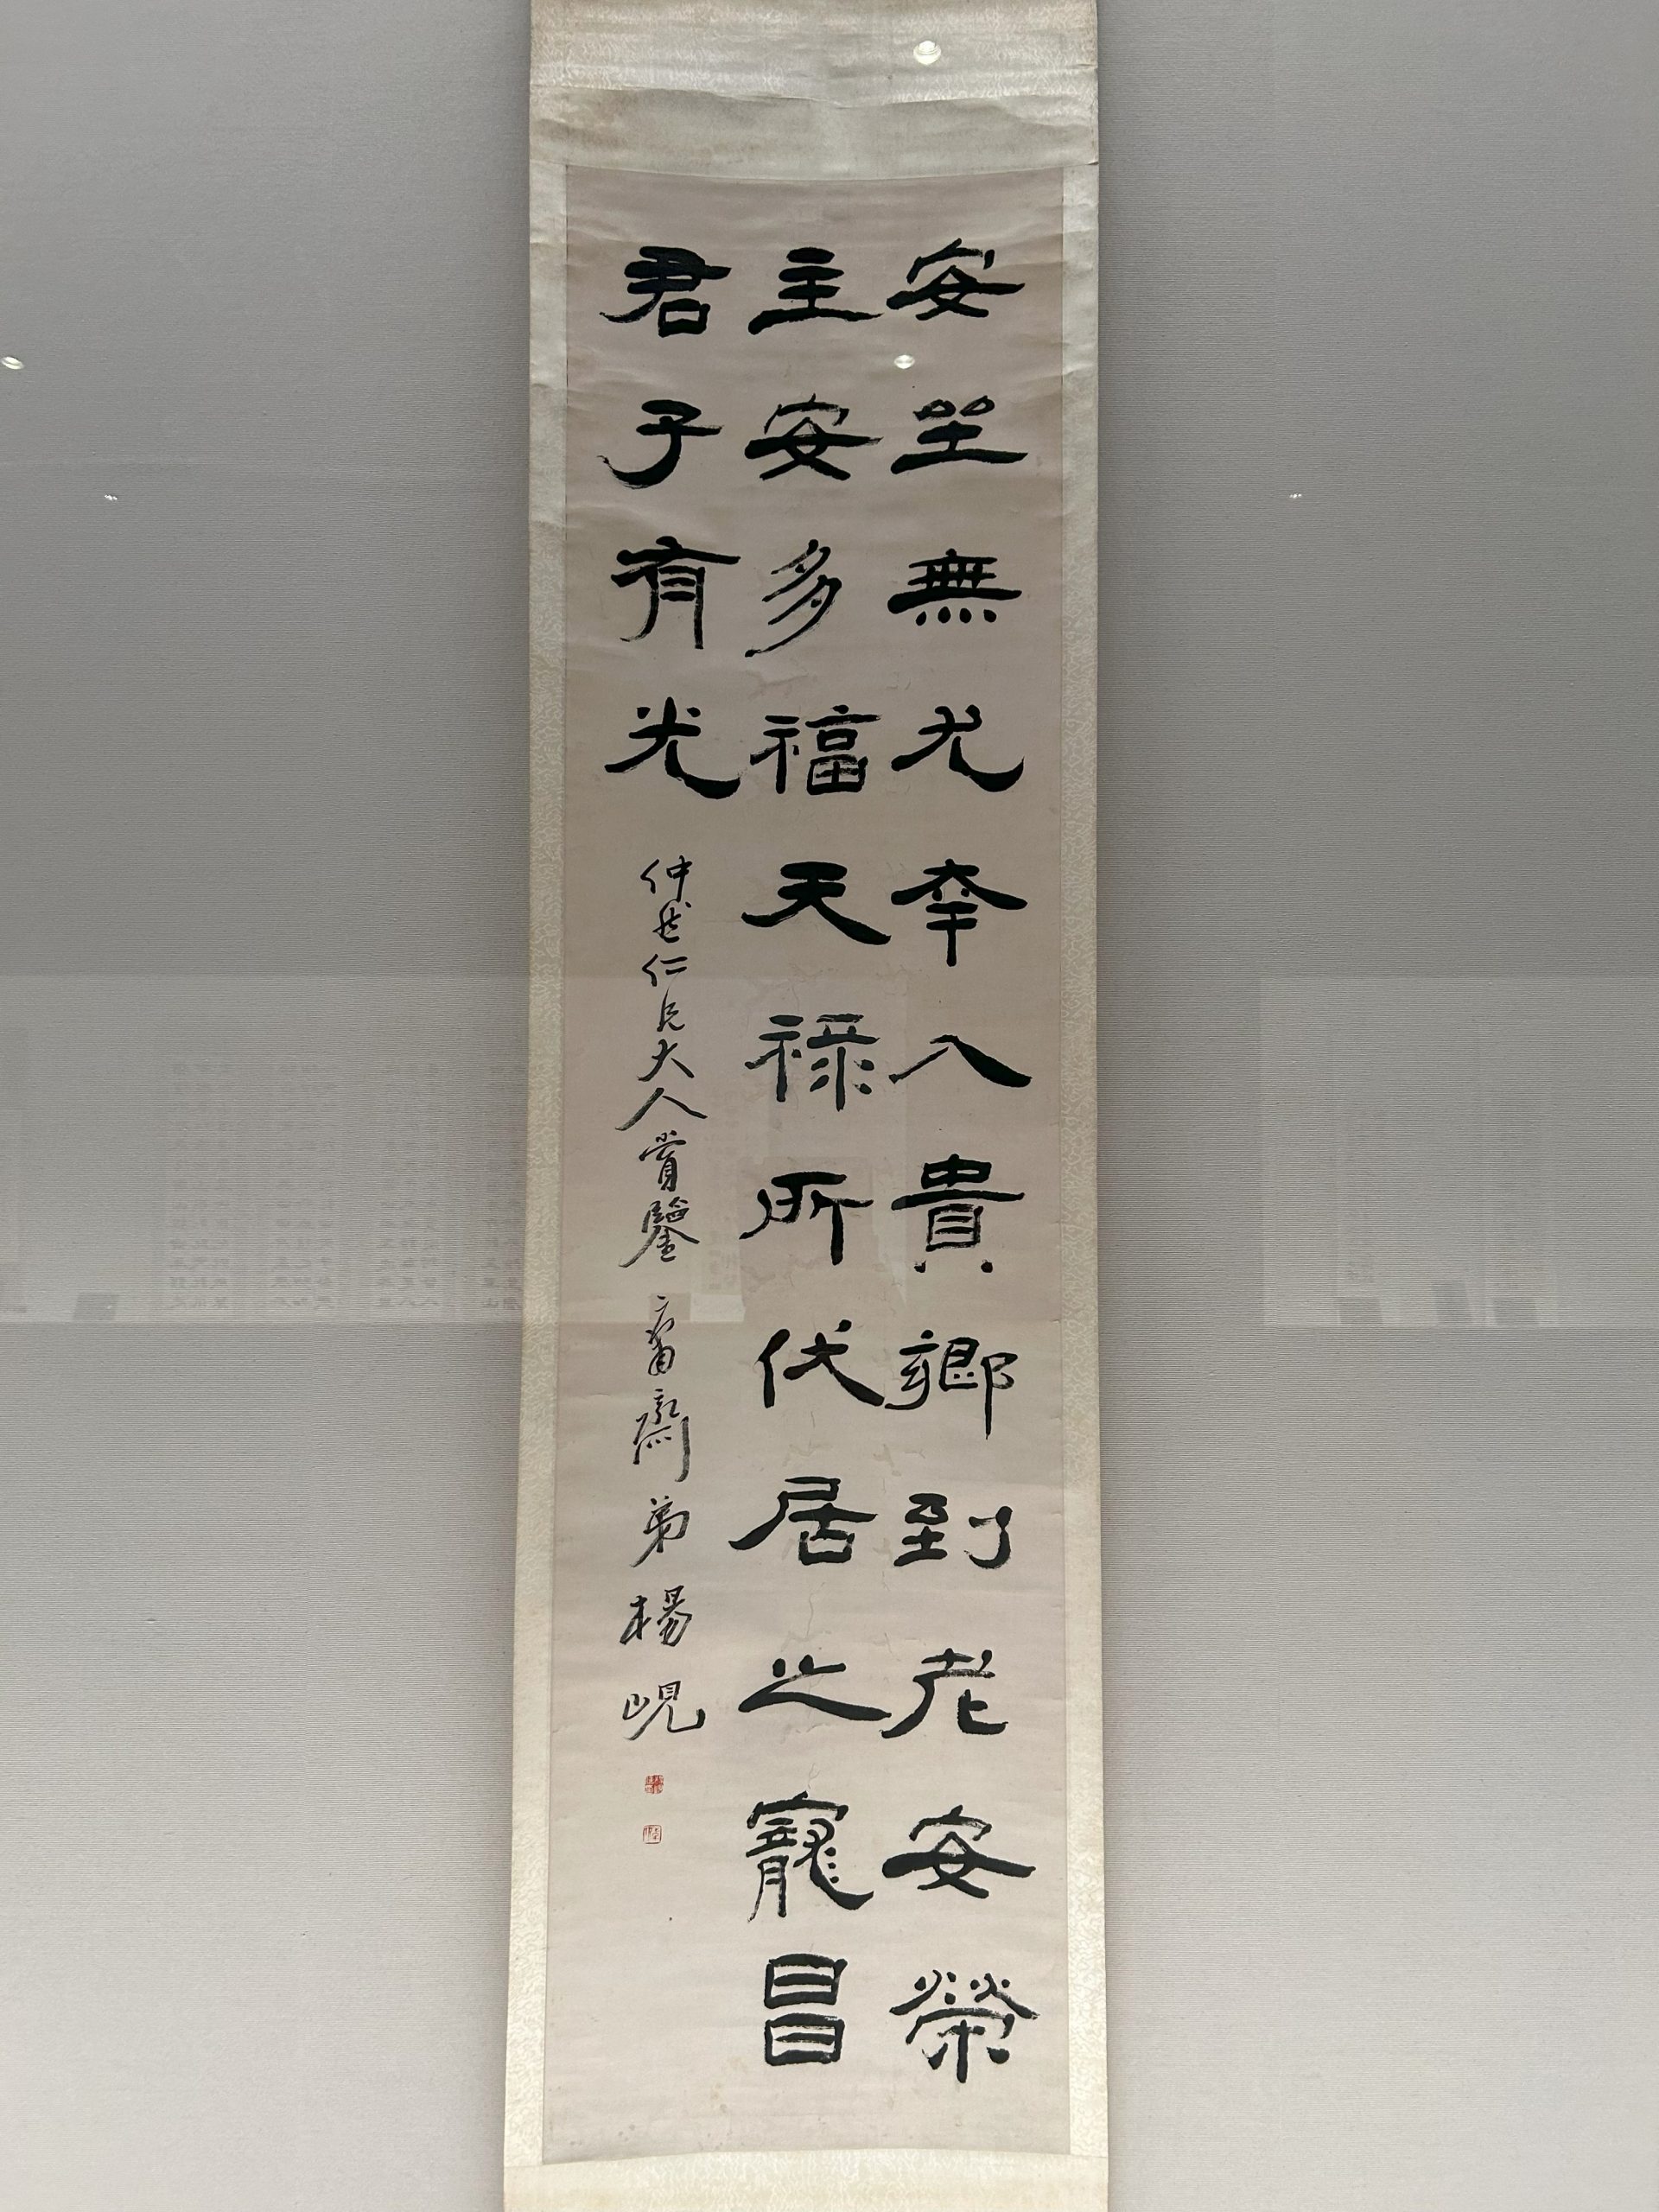 安坐無尤幸入貴鄉到老安榮
主安多福天祿所伏居之寵昌
君子有光
仲 仁兄大人賞鑒 庸齋弟楊峴